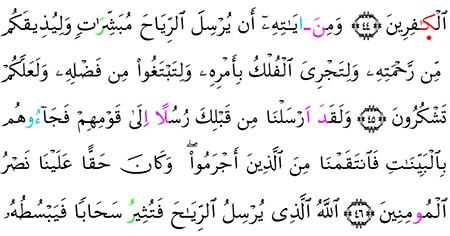 اَ۬لْكٰ۪فِرِينَ ۝٤٤ وَمِنَ اٰيَٰتِهِۦٓ أَنْ يُرْسِلَ اَ۬لرِّيَاحَ مُبَشِّرَٰتٖ وَلِيُذِيقَكُم
مِّن رَّحْمَتِهِۦ وَلِتَجْرِيَ اَ۬لْفُلْكُ بِأَمْرِهِۦ وَلِتَبْتَغُواْ مِن فَضْلِهِۦ وَلَعَلَّكُمْ
تَشْكُرُونَ ۝٤٥ وَلَقَدَ اَرْسَلْنَا مِن قَبْلِكَ رُسُلًا اِلَىٰ قَوْمِهِمْ فَجَآءُوهُم
بِالْبَيِّنَٰتِ فَانتَقَمْنَا مِنَ اَ۬لذِينَ أَجْرَمُواْۖ وَكَانَ حَقًّا عَلَيْنَا نَصْرُ
اُ۬لْمُومِنِينَ ۝٤٦ اَ۬للَّهُ اُ۬لذِي يُرْسِلُ اُ۬لرِّيَٰحَ فَتُثِيرُ سَحَابٗا فَيَبْسُطُهُۥ